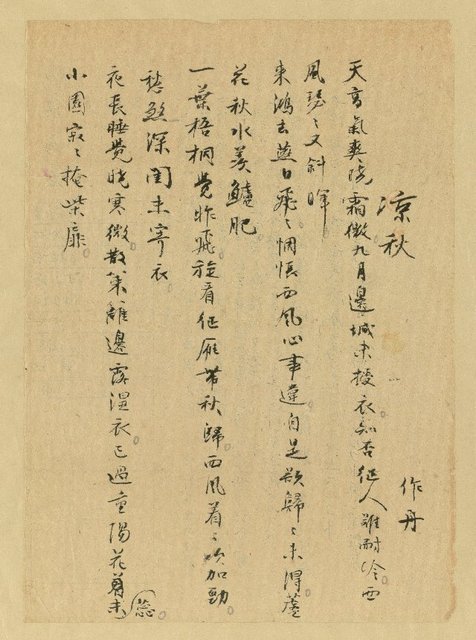 涼秋
作丹
天高氣爽霜微九月邊城未授衣知否征人難耐冷西
風瑟〻又斜暉
來鴻去燕日飛〻惆悵西風心事違自是欲歸〻未得蘆
花秋水羨鱸肥
一葉梧桐覺昨飛旋看征雁帶秋歸西風着〻吹加勁
愁煞深閨未寄衣
夜長睡覺曉寒微散策籬邊露濕衣已過重陽花未蕊
小園寂〻掩柴扉